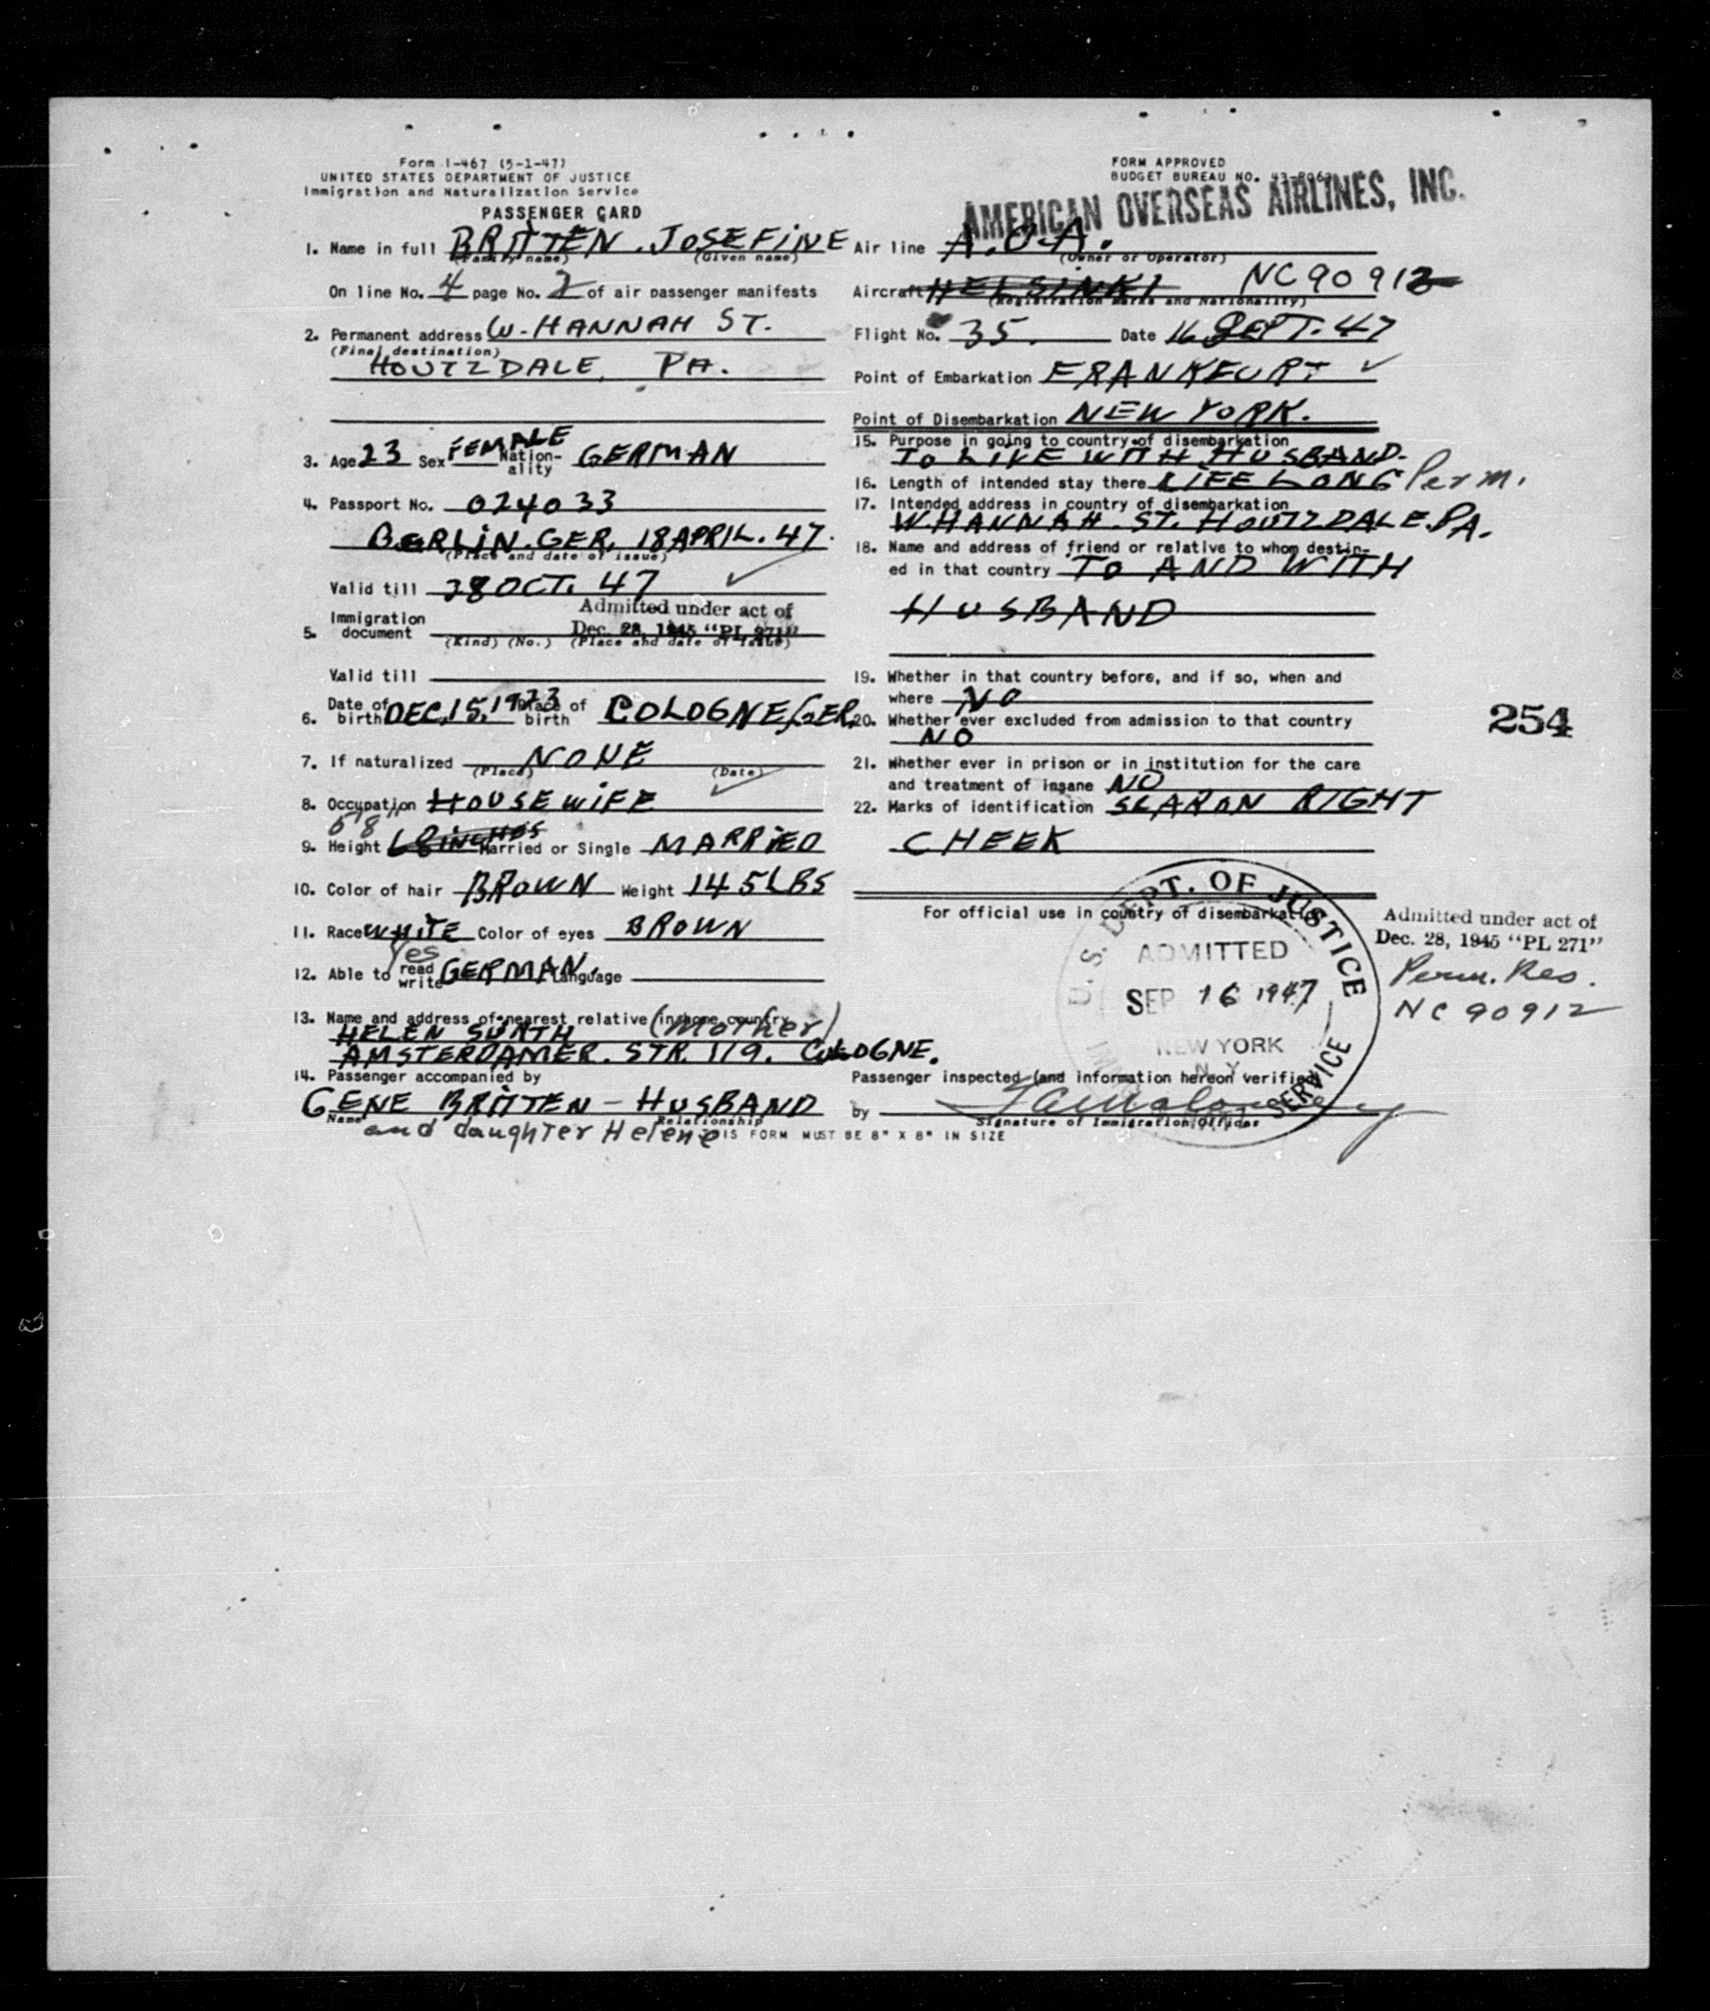 Form I-467 (5-1-47)
UNITED STATES DEPARTMENT OF JUSTICE
Immigration and Naturalization Service
PASSENGER CARD
1. Name in full BRITTEN. JOSEFINE
(Family name) (Given name)
On line No. 4 page No. 2 of air passenger manifests
2. Permanent address W-HANNAH ST.
(Final destination)
HOUTZDALE, PA.
3. Age 23 Sex FEMALE Nation-ality GERMAN
4. Passport No. 024033
BERLIN. GER. 18 APRIL. 47.
(Place and date of issue)
Valid till 28 OCT. 47
Admitted under act of
Dec. 28, 1945 "PL 271"
5. Immigration document
(Kind) (No.) (Place and date of issue)
Valid till
6. Date of birth DEC. 15. 1923 Place of birth COLOGNE/GER.
7. If naturalized NONE
(Place) (Date)
8. Occupation HOUSEWIFE
5'8"
9. Height 68 INCHES Married or Single MARRIED
10. Color of hair BROWN Weight 145 LBS
11. Race WHITE Color of eyes BROWN
Yes
12. Able to read write GERMAN. Language
13. Name and address of nearest relative in home country
HELEN (Mother)
AMSTERDAMER. STR. 119. COLOGNE.
14. Passenger accompanied by
GENE BRITTEN - HUSBAND
Name Relationship
and daughter Helene
THIS FORM MUST BE 8" X 8" IN SIZE
FORM APPROVED
BUDGET BUREAU NO.
AMERICAN OVERSEAS AIRLINES, INC.
Air line A.O.A.
(Owner or Operator)
Aircraft HELSINKI NC90912
(Registration marks and Nationality)
Flight No. 35. Date 16 SEPT. 47
Point of Embarkation FRANKFURT
Point of Disembarkation NEW YORK.
15. Purpose in going to country of disembarkation
TO LIVE WITH HUSBAND.
16. Length of intended stay there LIFE LONG Perm.
17. Intended address in country of disembarkation
W HANNAH. ST. HOUTZDALE. PA.
18. Name and address of friend or relative to whom destin-
ed in that country TO AND WITH
HUSBAND
19. Whether in that country before, and if so, when and
where NO
20. Whether ever excluded from admission to that country
NO
254
21. Whether ever in prison or in institution for the care
and treatment of insane NO
22. Marks of identification SCAR ON RIGHT
CHEEK
For official use in country of disembarkation
U.S. DEPT. OF JUSTICE
ADMITTED
SEP 16 1947
NEW YORK
N.Y.
SERVICE
Admitted under act of
Dec. 28, 1945 "PL 271"
Perm. Res.
NC 90912
Passenger inspected (and information hereon verified
by
Signature of Immigration Officer